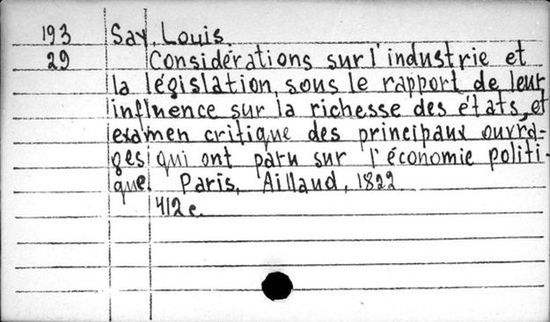 193 Say, Louis.
29 Considérations sur l'industrie et
la législation, sous le rapport de leur
influence sur la richesse des états, et
examen critique des principaux ouvra-
ges qui ont paru sur l'économie politi-
que. Paris, Aillaud, 1822
412 c.